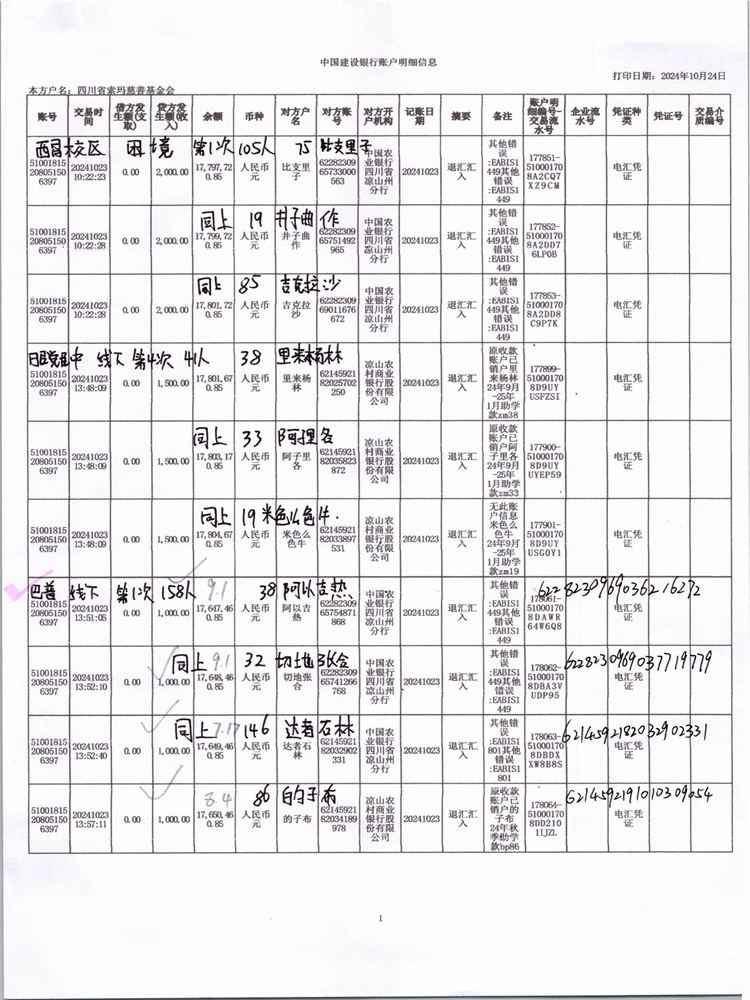 中国建设银行账户明细信息
打印日期：2024年10月24日
本方户名：四川省索玛慈善基金会
账号 交易时间 借方发生额(支取) 贷方发生额(收入) 余额 币种 对方户名 对方账号 对方开户机构 记账日期 摘要 备注 账户明细编号-交易流水号 企业流水号 凭证种类 凭证号 交易介质编号
西昌校区 困境 第1次 105人 75 比支里子
51001815208051506397 20241023 10:22:23 0.00 2,000.00 17,797,720.85 人民币元 比支里子 6228230965733000563 中国农业银行四川省凉山州分行 20241023 退汇汇入 其他错误:EABIS1449其他错误:EABIS1449 177851-510001708A2CQ7XZ9CM 电汇凭证
同上 19 井子曲作
51001815208051506397 20241023 10:22:28 0.00 2,000.00 17,799,720.85 人民币元 井子曲作 6228230965751492965 中国农业银行四川省凉山州分行 20241023 退汇汇入 其他错误:EABIS1449其他错误:EABIS1449 177852-510001708A2DD76LP0B 电汇凭证
同上 85 吉克拉沙
51001815208051506397 20241023 10:22:28 0.00 2,000.00 17,801,720.85 人民币元 吉克拉沙 6228230969011676672 中国农业银行四川省凉山州分行 20241023 退汇汇入 其他错误:EABIS1449其他错误:EABIS1449 177853-510001708A2DD8C9P7K 电汇凭证
中 线下 第4次 41人 38 里来杨林
51001815208051506397 20241023 13:48:09 0.00 1,500.00 17,801,670.85 人民币元 里来杨林 6214592182025702250 凉山农村商业银行股份有限公司 20241023 退汇汇入 原收款账户已销户里来杨林24年9月-25年1月助学款zm38 177899-510001708D9UYUSFZSI 电汇凭证
同上 33 阿里各
51001815208051506397 20241023 13:48:09 0.00 1,500.00 17,803,170.85 人民币元 阿子里各 6214592182035823872 凉山农村商业银行股份有限公司 20241023 退汇汇入 原收款账户已销户阿子里各24年9月-25年1月助学款zm33 177900-510001708D9UYUYEP59 电汇凭证
同上 19 米色么色牛
51001815208051506397 20241023 13:48:09 0.00 1,500.00 17,804,670.85 人民币元 米色么色牛 6214592182033897531 凉山农村商业银行股份有限公司 20241023 退汇汇入 无此账户信息米色么色牛24年9月-25年1月助学款zm19 177901-510001708D9UYUSGOY1 电汇凭证
巴普 线下 第1次 158人 9.1 38 阿以吉热 6228230969036216272
51001815208051506397 20241023 13:51:05 0.00 1,000.00 17,647,460.85 人民币元 阿以吉热 6228230965754871868 中国农业银行四川省凉山州分行 20241023 退汇汇入 其他错误:EABIS1449其他错误:EABIS1449 178061-510001708DAWR64W6Q8 电汇凭证
同上 9.1 32 切地张合 6228230969037719779
51001815208051506397 20241023 13:52:10 0.00 1,000.00 17,648,460.85 人民币元 切地张合 6228230965741266768 中国农业银行四川省凉山州分行 20241023 退汇汇入 其他错误:EABIS1449其他错误:EABIS1449 178062-510001708DBA3VUDP95 电汇凭证
同上 7.17 146 达者石林 6214592182032902331
51001815208051506397 20241023 13:52:40 0.00 1,000.00 17,649,460.85 人民币元 达者石林 6214592182032902331 中国农业银行四川省凉山州分行 20241023 退汇汇入 其他错误:EABIS1801其他错误:EABIS1801 178063-510001708DBDXXW8B8S 电汇凭证
8.4 86 的子布 6214592191010309054
51001815208051506397 20241023 13:57:11 0.00 1,000.00 17,650,460.85 人民币元 的子布 6214592182034189978 凉山农村商业银行股份有限公司 20241023 退汇汇入 原收款账户已销户的子布24年秋季助学款bp86 178064-510001708DD2101IJZL 电汇凭证
1